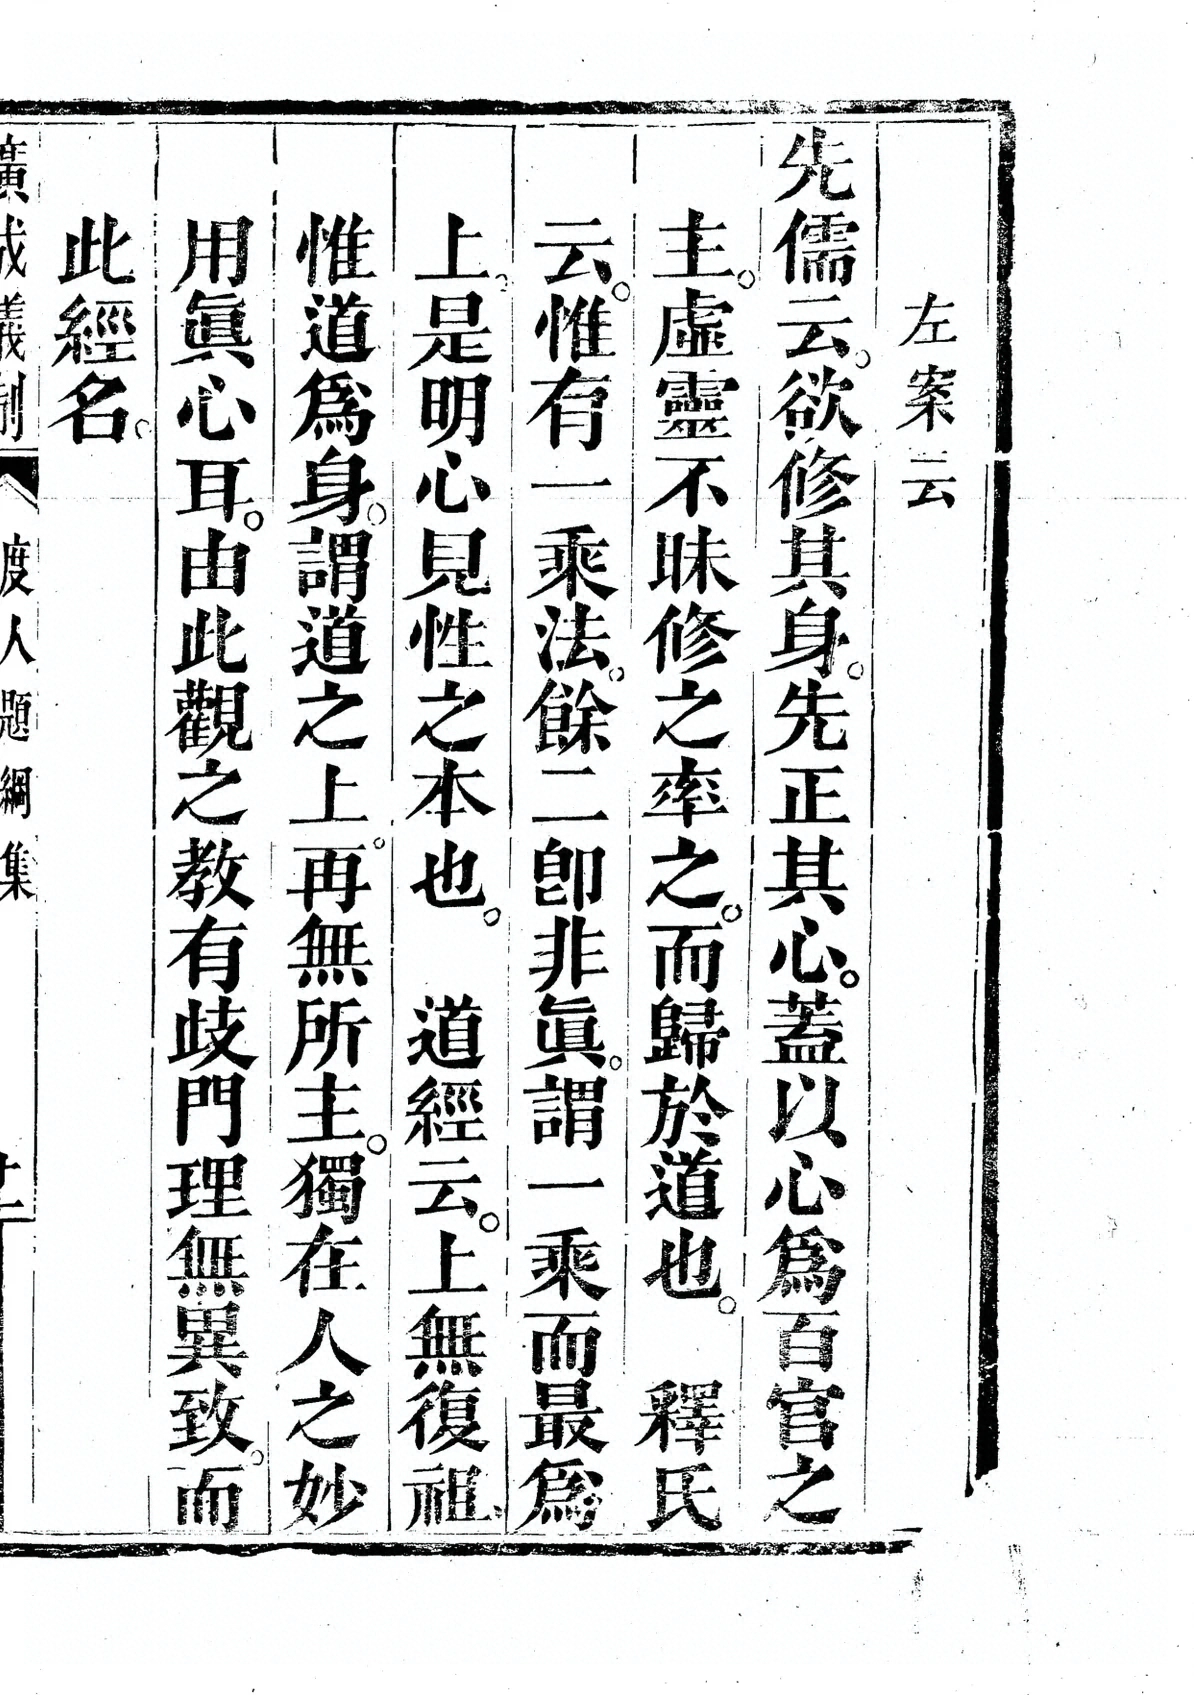 左案云
先儒云。欲修其身。先正其心。蓋以心爲百官之
主。虛靈不昧修之率之。而歸於道也。　釋氏
云。惟有一乘法。餘二卽非眞。謂一乘而最爲
上。是明心見性之本也。　道經云。上無復祖、
惟道爲身。謂道之上。再無所主。獨在人之妙
用眞心耳。由此觀之教有歧門理無異致。而
此經名。
廣成儀制　度人題綱集